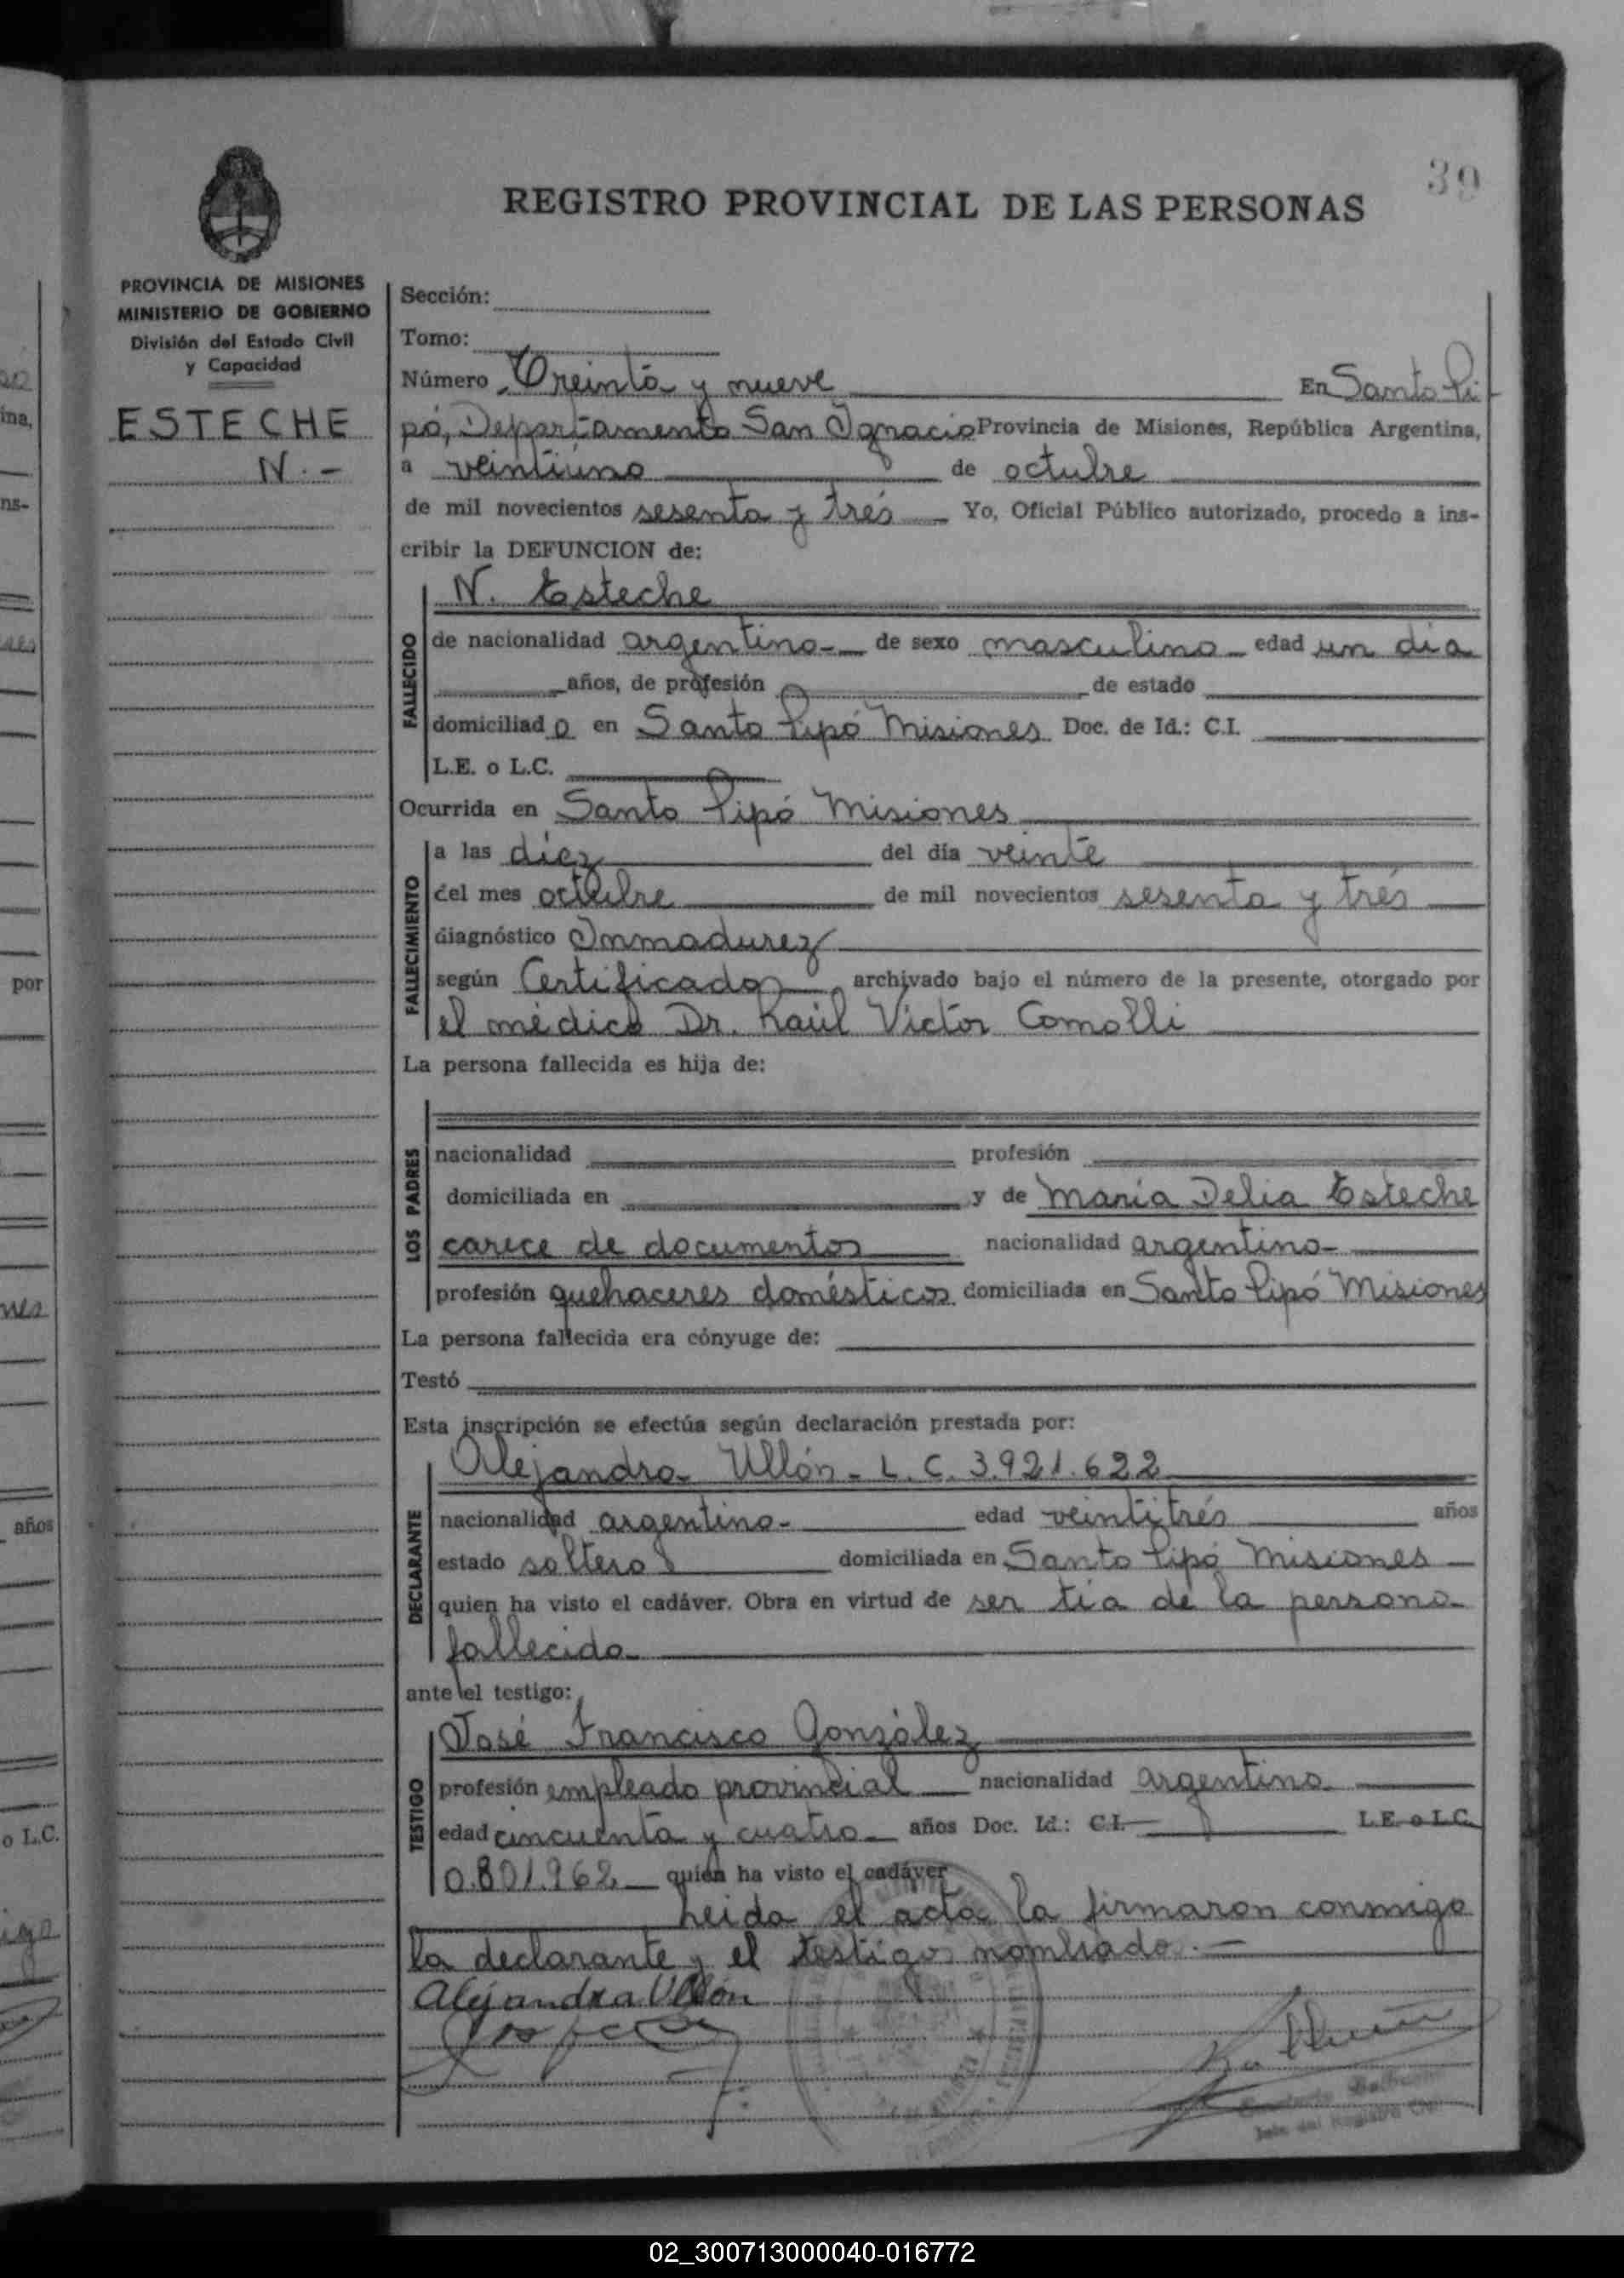 39
REGISTRO PROVINCIAL DE LAS PERSONAS
PROVINCIA DE MISIONES
MINISTERIO DE GOBIERNO
División del Estado Civil
y Capacidad
ESTECHE
N.-
Sección:
Tomo:
Número Treinta y nueve En Santo Pi
pó, Departamento San Ignacio Provincia de Misiones, República Argentina,
a veintiuno de octubre
de mil novecientos sesenta y trés Yo, Oficial Público autorizado, procedo a ins-
cribir la DEFUNCION de:
FALLECIDO
N. Esteche
de nacionalidad argentina- de sexo masculino edad un dia
años, de profesión de estado
domiciliado en Santo Pipó Misiones Doc. de Id.: C.I.
L.E. o L.C.
Ocurrida en Santo Pipó Misiones
FALLECIMIENTO
a las diez del día veinte
del mes octubre de mil novecientos sesenta y trés
diagnóstico Inmadurez
según Certificado archivado bajo el número de la presente, otorgado por
el médico Dr. Raúl Víctor Comolli
La persona fallecida es hija de:
LOS PADRES
nacionalidad profesión
domiciliada en y de María Delia Esteche
carece de documentos nacionalidad argentina-
profesión quehaceres domésticos domiciliada en Santo Pipó Misiones
La persona fallecida era cónyuge de:
Testó
Esta inscripción se efectúa según declaración prestada por:
DECLARANTE
Alejandra Ullón - L.C. 3.921.622
nacionalidad argentina- edad veintitrés años
estado soltera domiciliada en Santo Pipó Misiones
quien ha visto el cadáver. Obra en virtud de ser tía de la persona
fallecida
ante el testigo:
TESTIGO
José Francisco González
profesión empleado provincial nacionalidad argentina
edad cincuenta y cuatro años Doc. Id.: C.I. L.E. o L.C.
0.801.962 quien ha visto el cadáver
Leida el acta la firmaron conmigo
la declarante y el testigo nombrado.-
Alejandra Ullón
Jefe del Registro Civil
ina,
ns-
por
años
o L.C.
02_300713000040-016772